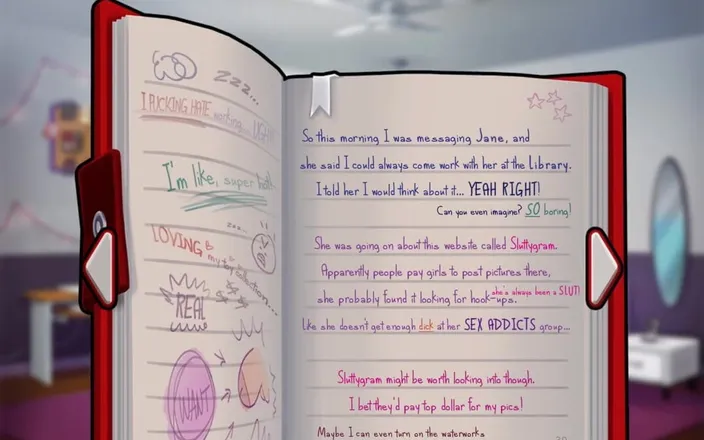 zzz...
I FUCKING HATE working... UGH!
I'm like, super
zzz...
LOVING
my toy collection...
REAL
WANT
So this morning I was messaging Jane, and
she said I could always come work with her at the Library.
I told her I would think about it... YEAH RIGHT!
Can you even imagine? SO boring!
She was going on about this website called Sluttygram.
Apparently people pay girls to post pictures there,
she's always been a SLUT!
she probably found it looking for hook-ups.
Like she doesn't get enough dick at her SEX ADDICTS group...
Sluttygram might be worth looking into though.
I bet they'd pay top dollar for my pics!
Maybe I can even turn on the waterworks